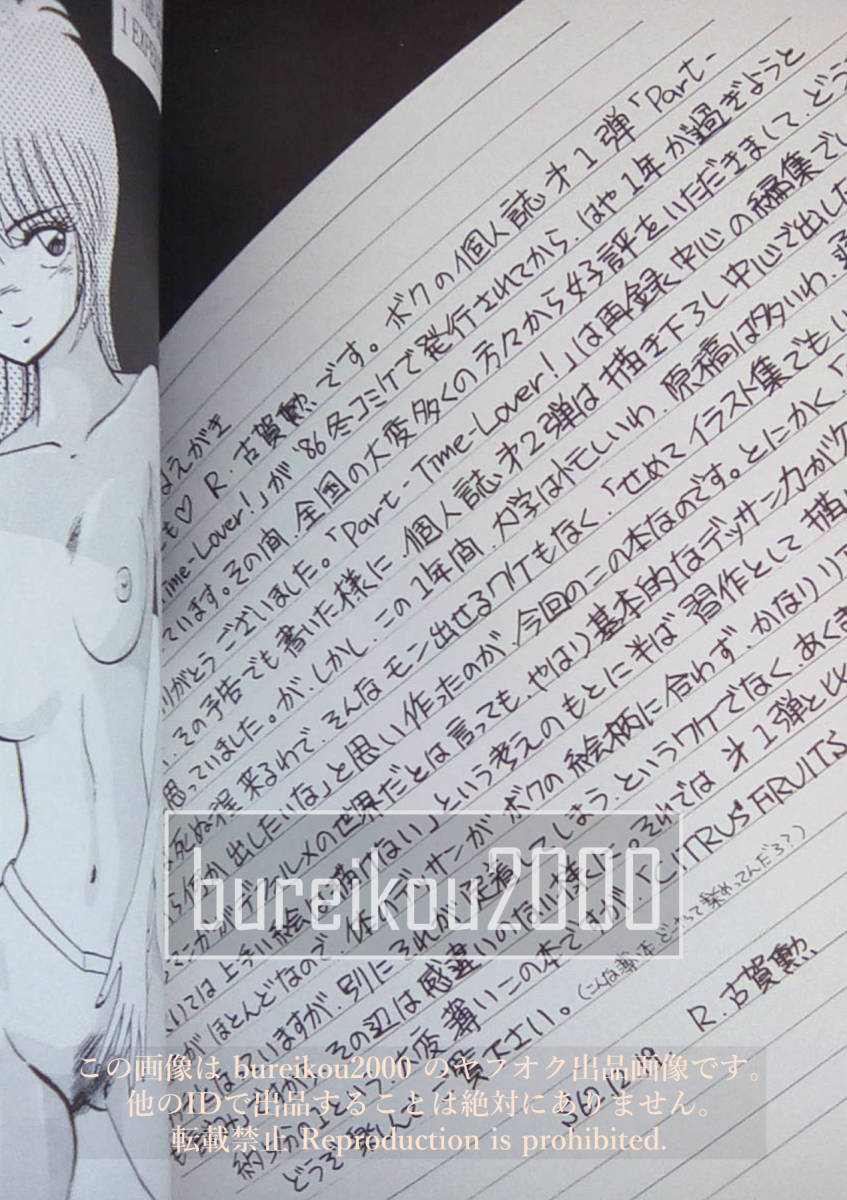 I EXPE
まえがき
も♡ R.古賀勲です。ボクの個人誌才1弾「Part-
Time-Lover!」が'86冬コミケで発行されてから、はや1年が過ぎようと
ています。その間、全国の大変多くの方々から好評をいただきまして、どう
りがとうございました。「Part-Time-Lover!」は再録中心の編集でし
、その予告でも書いた様に、個人誌才2弾は描き下ろし中心で出した
思っていました。が、しかし、この1年間、大学は忙しいわ、原稿は多いわ、
死ぬ程来るわで、そんなモン出せるワケもなく、「せめてイラスト集でもい
ら何か出したいな」と思い作ったのが、今回のこの本なのです。とにかく、
マンガがデフォルメの世界だとは言っても、やはり基本的なデッサン力が欠
いては上手い絵は描けない」という考えのもとに半ば習作として描い
がほとんどなので、体のデッサンがボクの絵柄に合わず、かなりリア
いますが、別にそれが定着してしまう、というワケでなく、あくま
その辺は感違いのない様に。それでは、才1弾と比
大変薄いこの本ですが、「CITRUS FRUITS
どうぞ楽しんで下さい。(こんな薄い本どーやって楽めってんだろ?)
S62.12.09 R.古賀勲
bureikou2000
この画像は bureikou2000 のヤフオク出品画像です。
他のIDで出品することは絶対にありません。
転載禁止 Reproduction is prohibited.